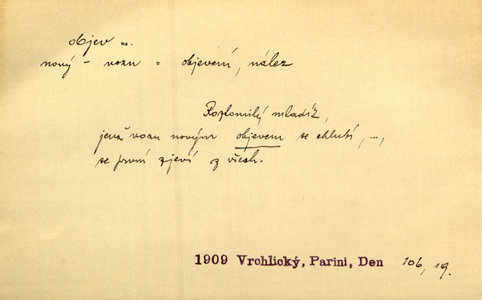 objev ...
nový - vozu = objevení, nález
Roztomilý mladík,
jenž vozu novým objevem se chlubí, ...,
se první zjeví z všech.
1909 Vrchlický, Parini, Den 106, 19.